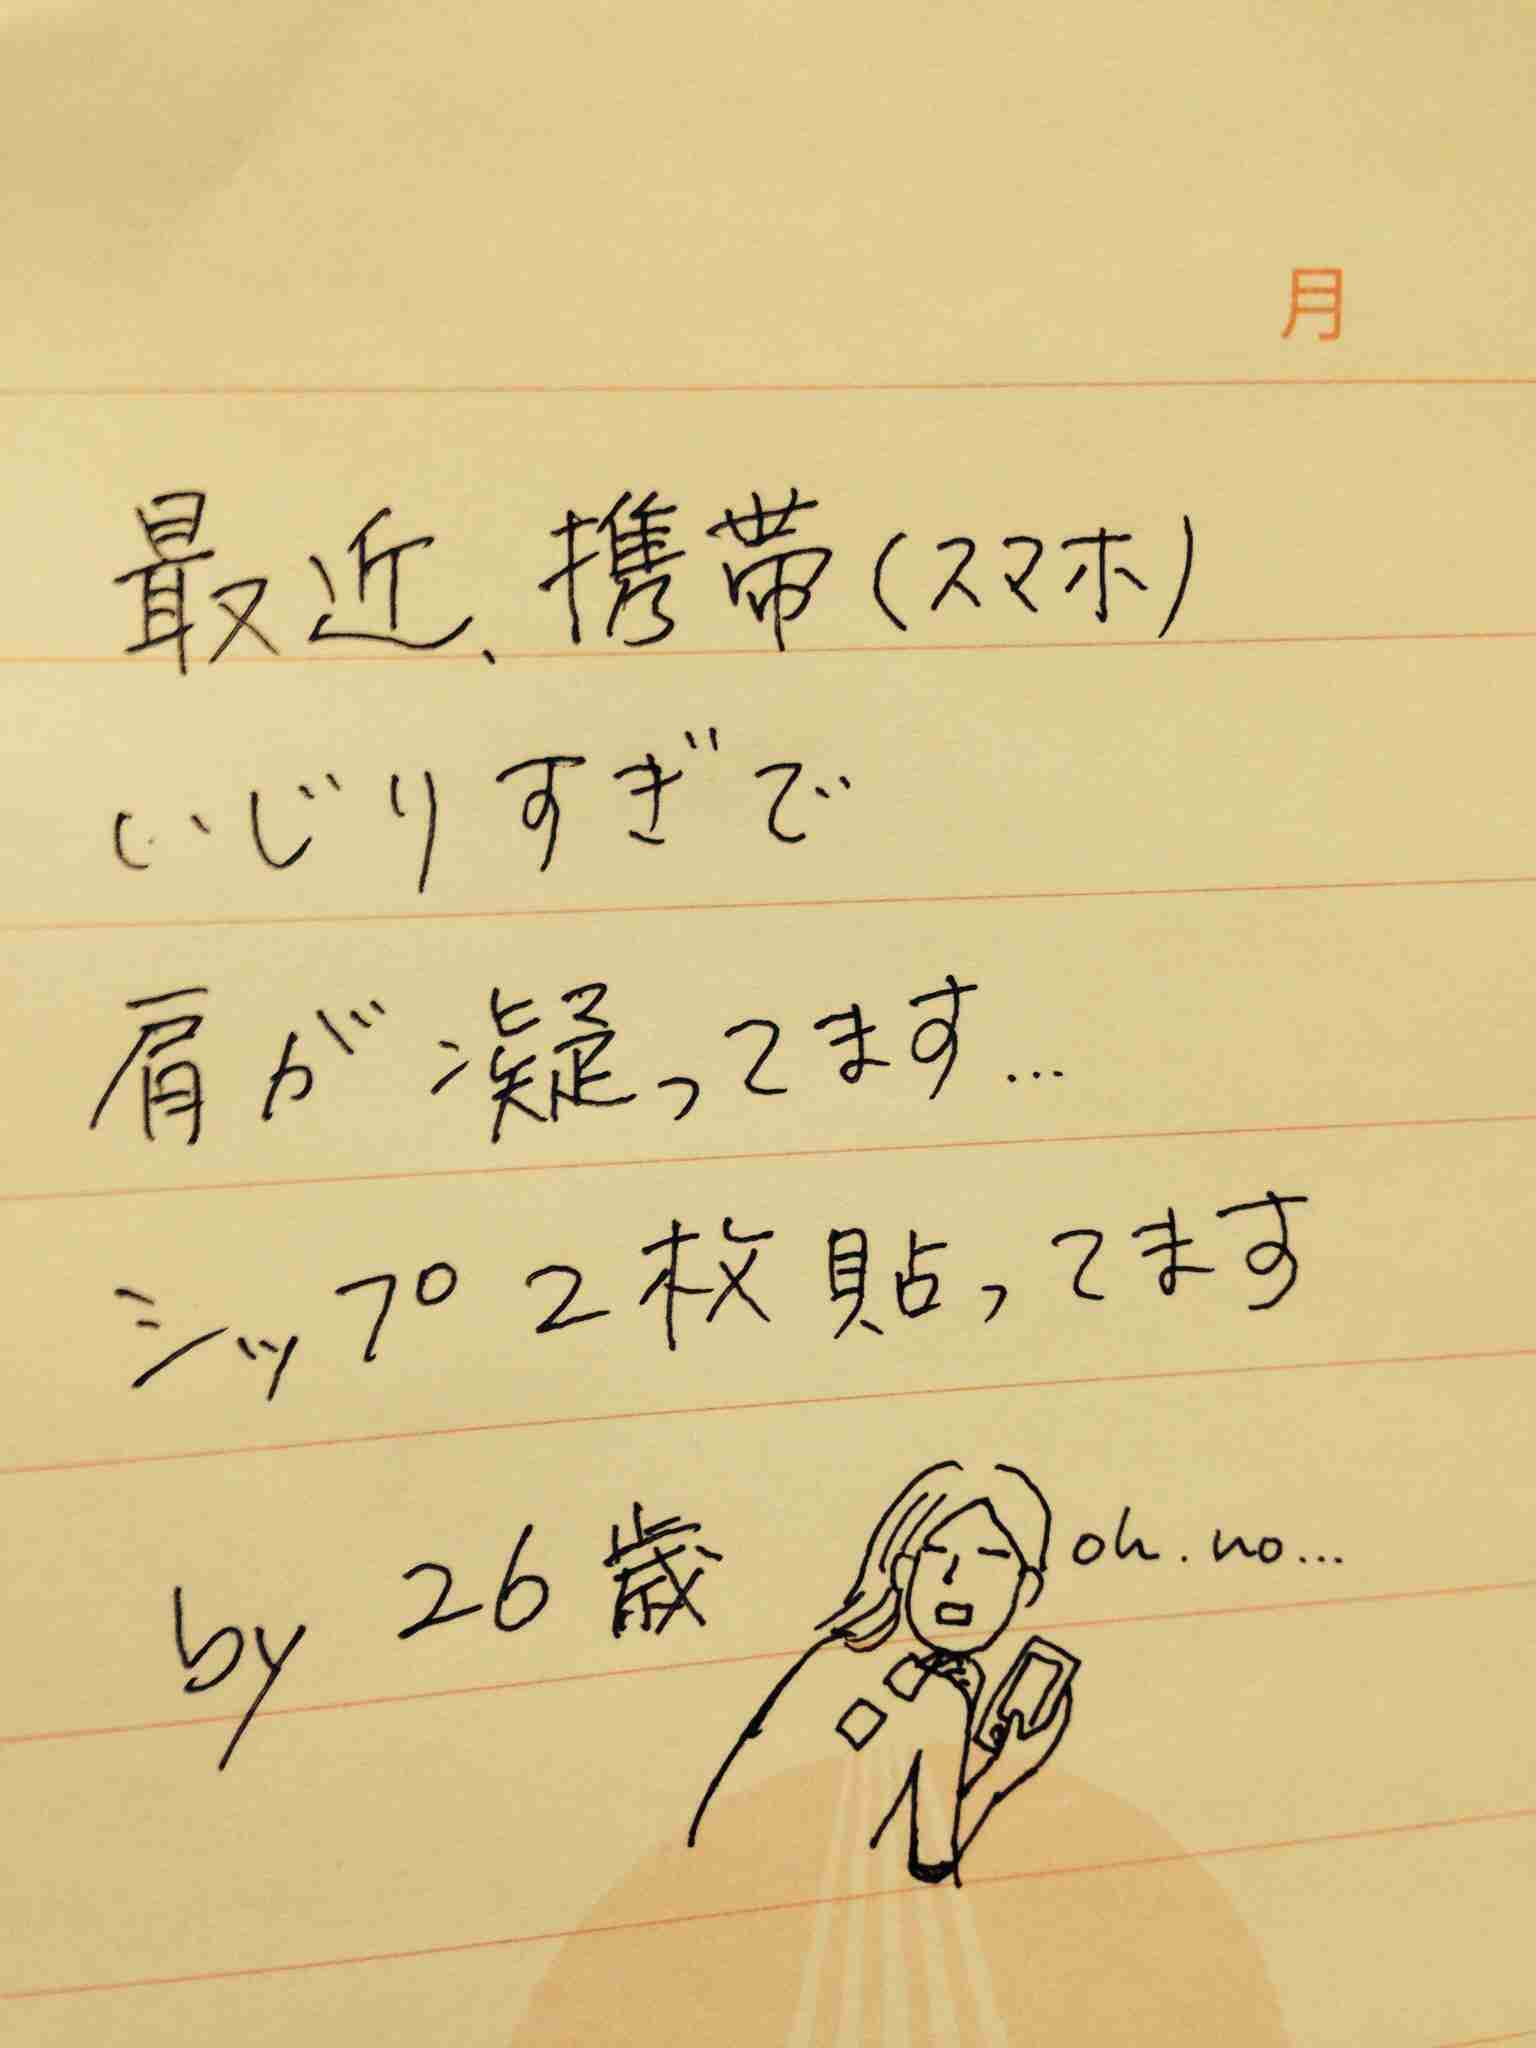 月
最近、携帯(スマホ)
いじりすぎで
肩が凝ってます...
シップ2枚貼ってます
by 26歳
oh. no...